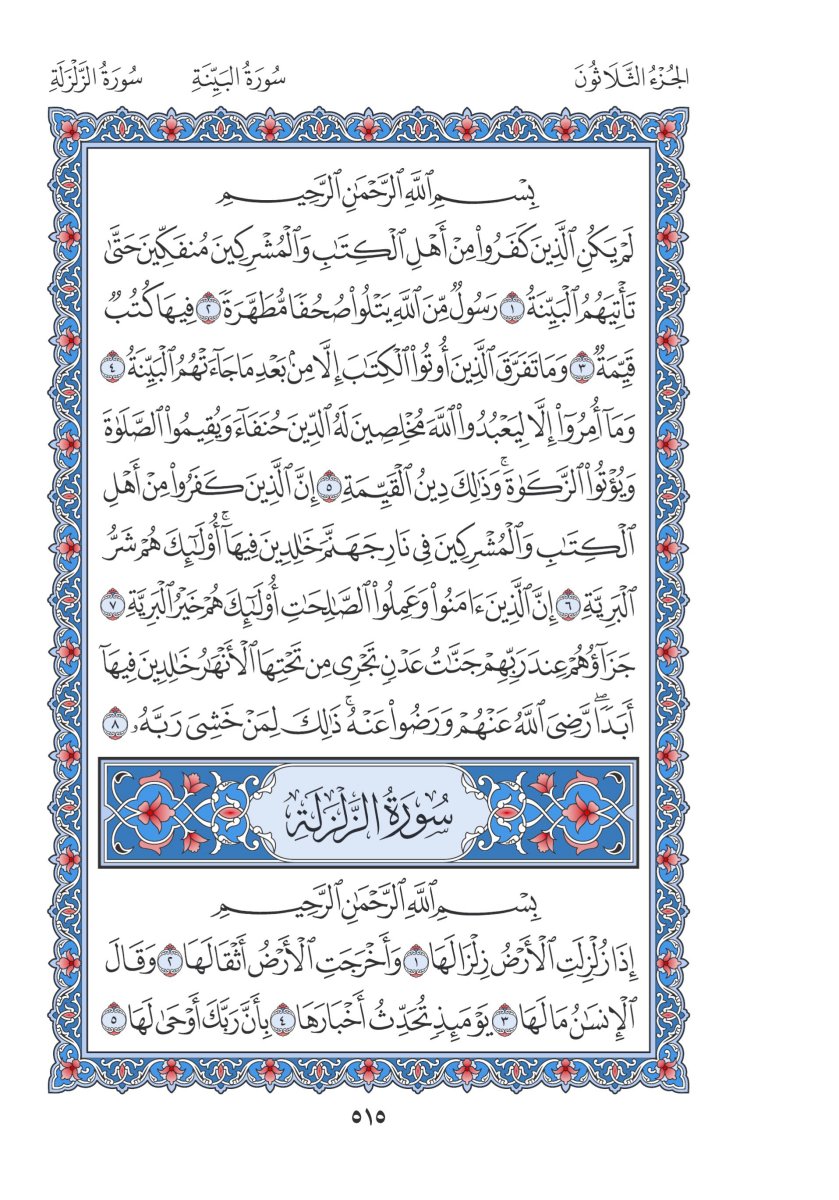 الجُزْءُ الثَّلَاثُونَ سُورَةُ البَيِّنَةِ سُورَةُ الزَّلْزَلَةِ
بِسْمِ ٱللَّهِ ٱلرَّحْمَٰنِ ٱلرَّحِيمِ
لَمْ يَكُنِ ٱلَّذِينَ كَفَرُوا۟ مِنْ أَهْلِ ٱلْكِتَٰبِ وَٱلْمُشْرِكِينَ مُنفَكِّينَ حَتَّىٰ
تَأْتِيَهُمُ ٱلْبَيِّنَةُ ١ رَسُولٌ مِّنَ ٱللَّهِ يَتْلُوا۟ صُحُفًا مُّطَهَّرَةً ٢ فِيهَا كُتُبٌ
قَيِّمَةٌ ٣ وَمَا تَفَرَّقَ ٱلَّذِينَ أُوتُوا۟ ٱلْكِتَٰبَ إِلَّا مِنۢ بَعْدِ مَا جَآءَتْهُمُ ٱلْبَيِّنَةُ ٤
وَمَآ أُمِرُوٓا۟ إِلَّا لِيَعْبُدُوا۟ ٱللَّهَ مُخْلِصِينَ لَهُ ٱلدِّينَ حُنَفَآءَ وَيُقِيمُوا۟ ٱلصَّلَوٰةَ
وَيُؤْتُوا۟ ٱلزَّكَوٰةَ ۚ وَذَٰلِكَ دِينُ ٱلْقَيِّمَةِ ٥ إِنَّ ٱلَّذِينَ كَفَرُوا۟ مِنْ أَهْلِ
ٱلْكِتَٰبِ وَٱلْمُشْرِكِينَ فِى نَارِ جَهَنَّمَ خَٰلِدِينَ فِيهَآ ۚ أُو۟لَٰٓئِكَ هُمْ شَرُّ
ٱلْبَرِيَّةِ ٦ إِنَّ ٱلَّذِينَ ءَامَنُوا۟ وَعَمِلُوا۟ ٱلصَّٰلِحَٰتِ أُو۟لَٰٓئِكَ هُمْ خَيْرُ ٱلْبَرِيَّةِ ٧
جَزَآؤُهُمْ عِندَ رَبِّهِمْ جَنَّٰتُ عَدْنٍ تَجْرِى مِن تَحْتِهَا ٱلْأَنْهَٰرُ خَٰلِدِينَ فِيهَآ
أَبَدًا ۖ رَّضِىَ ٱللَّهُ عَنْهُمْ وَرَضُوا۟ عَنْهُ ۚ ذَٰلِكَ لِمَنْ خَشِىَ رَبَّهُۥ ٨
سُورَةُ الزَّلْزَلَةِ
بِسْمِ ٱللَّهِ ٱلرَّحْمَٰنِ ٱلرَّحِيمِ
إِذَا زُلْزِلَتِ ٱلْأَرْضُ زِلْزَالَهَا ١ وَأَخْرَجَتِ ٱلْأَرْضُ أَثْقَالَهَا ٢ وَقَالَ
ٱلْإِنسَٰنُ مَا لَهَا ٣ يَوْمَئِذٍ تُحَدِّثُ أَخْبَارَهَا ٤ بِأَنَّ رَبَّكَ أَوْحَىٰ لَهَا ٥
٥١٥